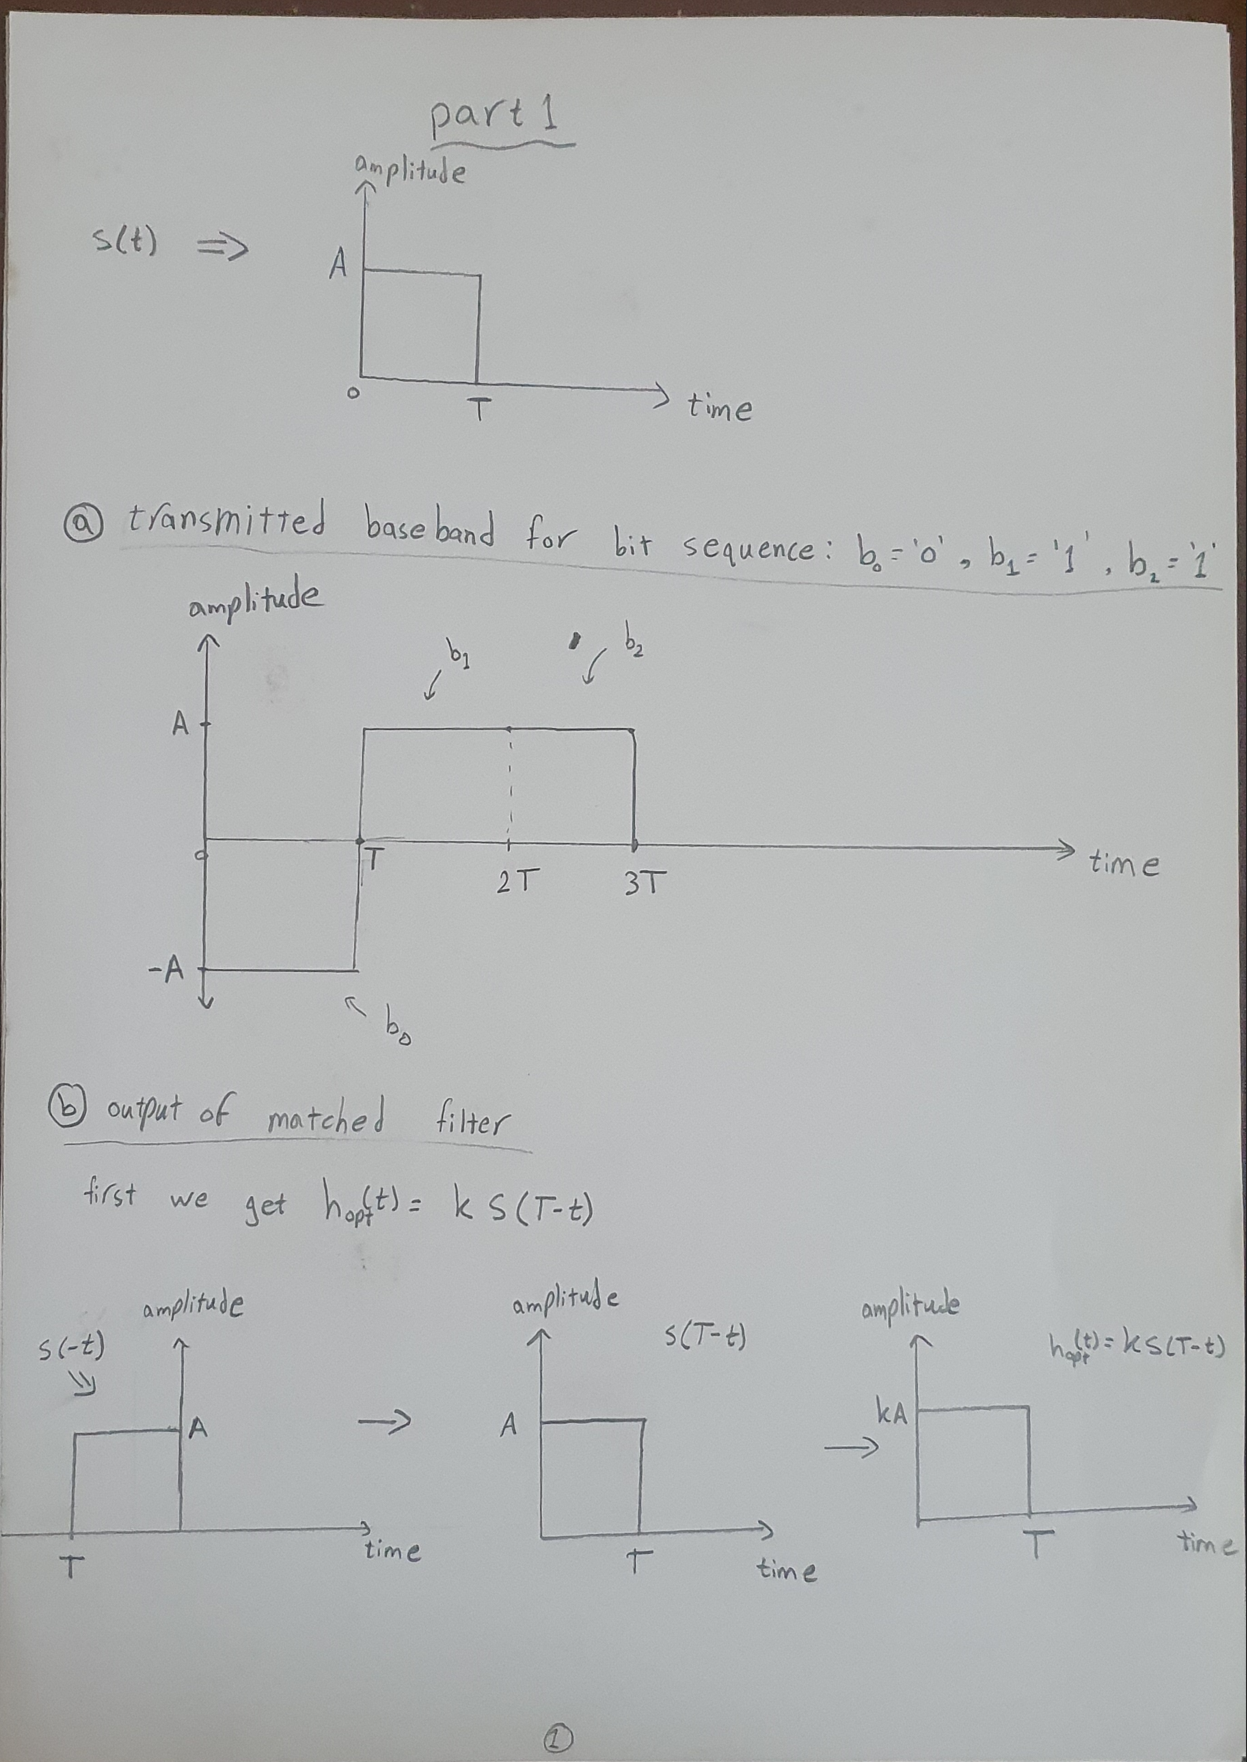 part 1
amplitude
s(t) ⇒
A
0
T
time
ⓐ transmitted baseband for bit sequence: b₀ = '0', b₁ = '1', b₂ = '1'
amplitude
b₁
b₂
A
0
T
2T
3T
time
-A
b₀
ⓑ output of matched filter
first we get hopt(t) = k s(T-t)
amplitude
s(-t)
A
T
time
→
amplitude
s(T-t)
A
T
time
→
amplitude
hopt(t) = k s(T-t)
kA
T
time
①